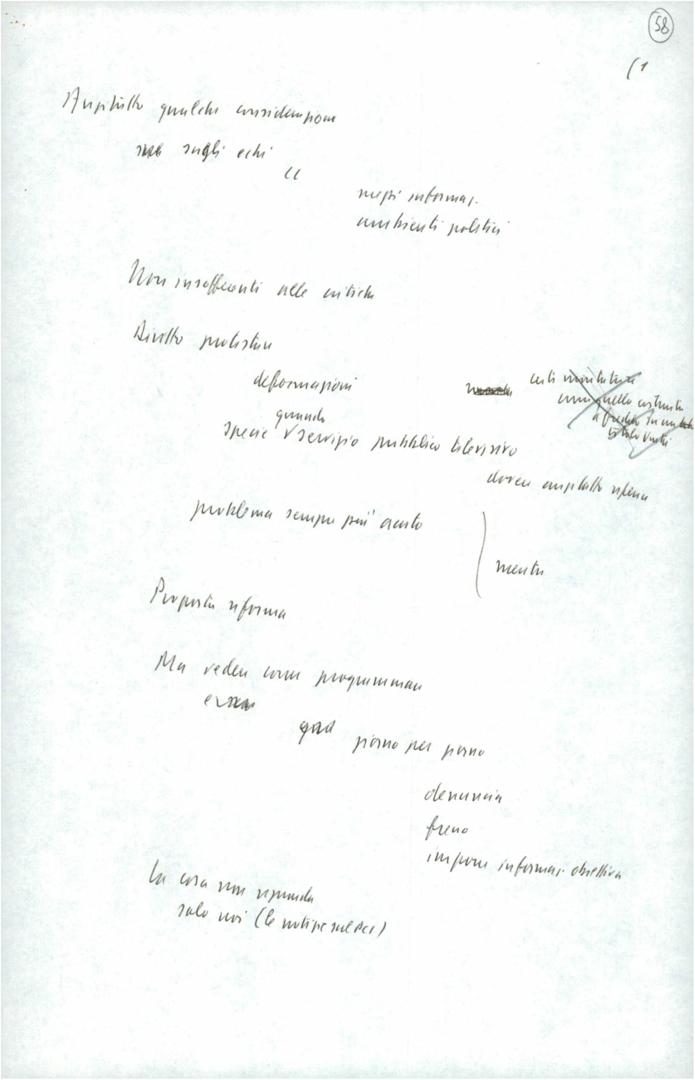 58
(1
Anzitutto qualche considerazione
sugli echi
"
mezzi informaz.
ambienti politici
Non insofferenti alle critiche
Diritto protestare
deformazioni
certi
quello costruito
a freddo in un
quando
specie servizio pubblico televisivo
dovere anzitutto
problema sempre più acuto
mentre
Proposta riforma
Ma vedere come programmare
giorno per giorno
denuncia
freno
imporre informaz. obiettiva
La cosa non riguarda
solo noi (le notizie sul PCI)